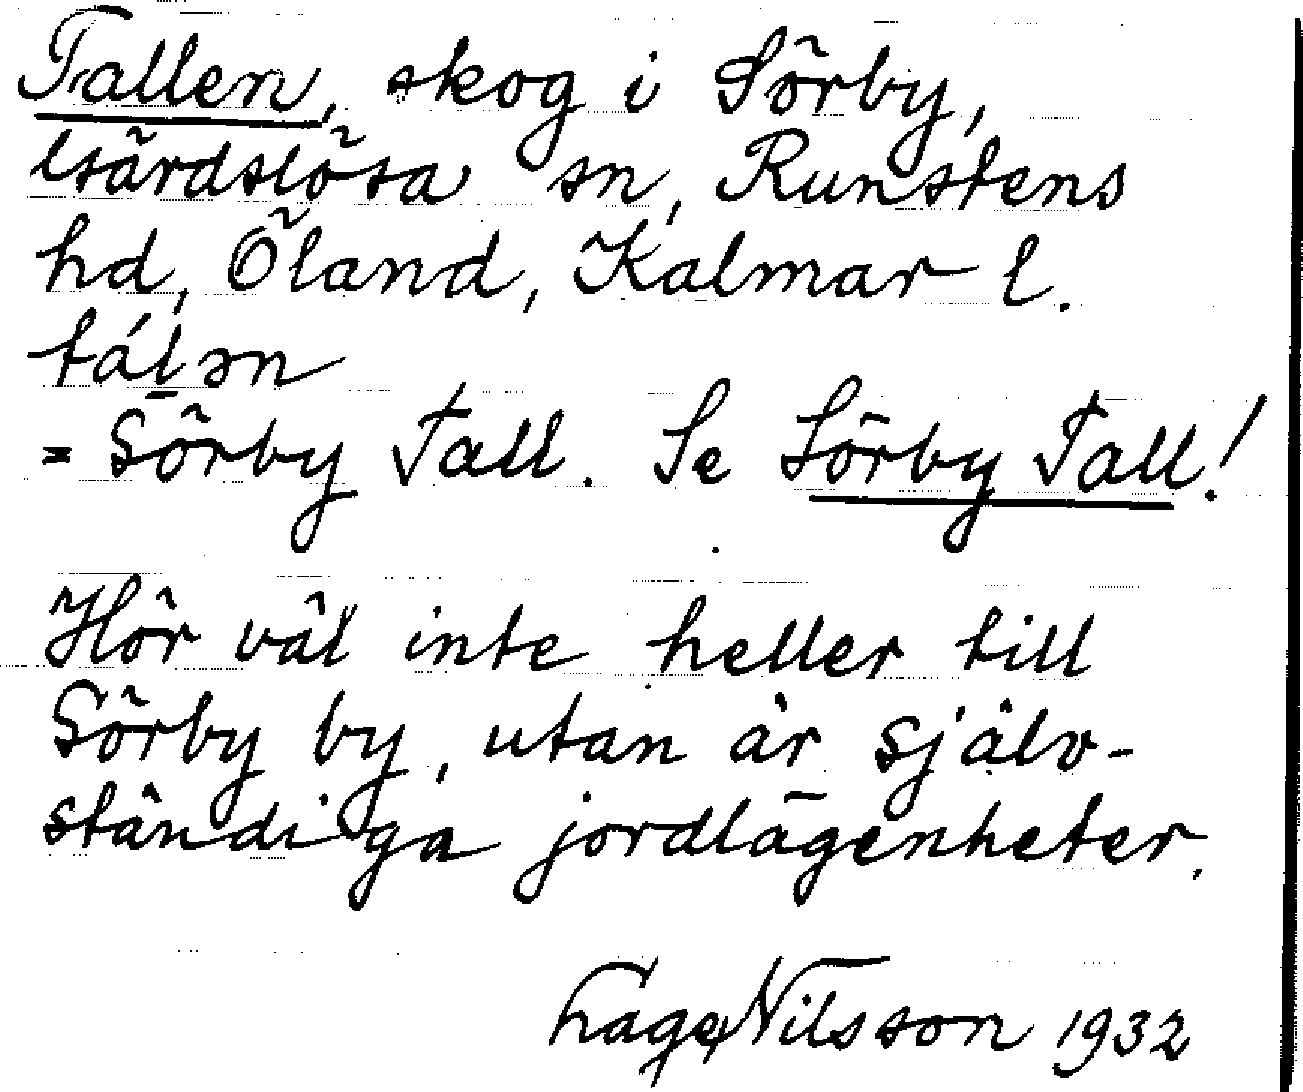 Tallen, skog i Sörby,
Gärdslösa sn, Runstens
hd, Öland, Kalmar l.
tál̠ən
= Sörby Tall. Se Sörby Tall!
Hör väl inte heller till
Sörby by, utan är själv-
ständiga jordlägenheter.
Nilsson 1932